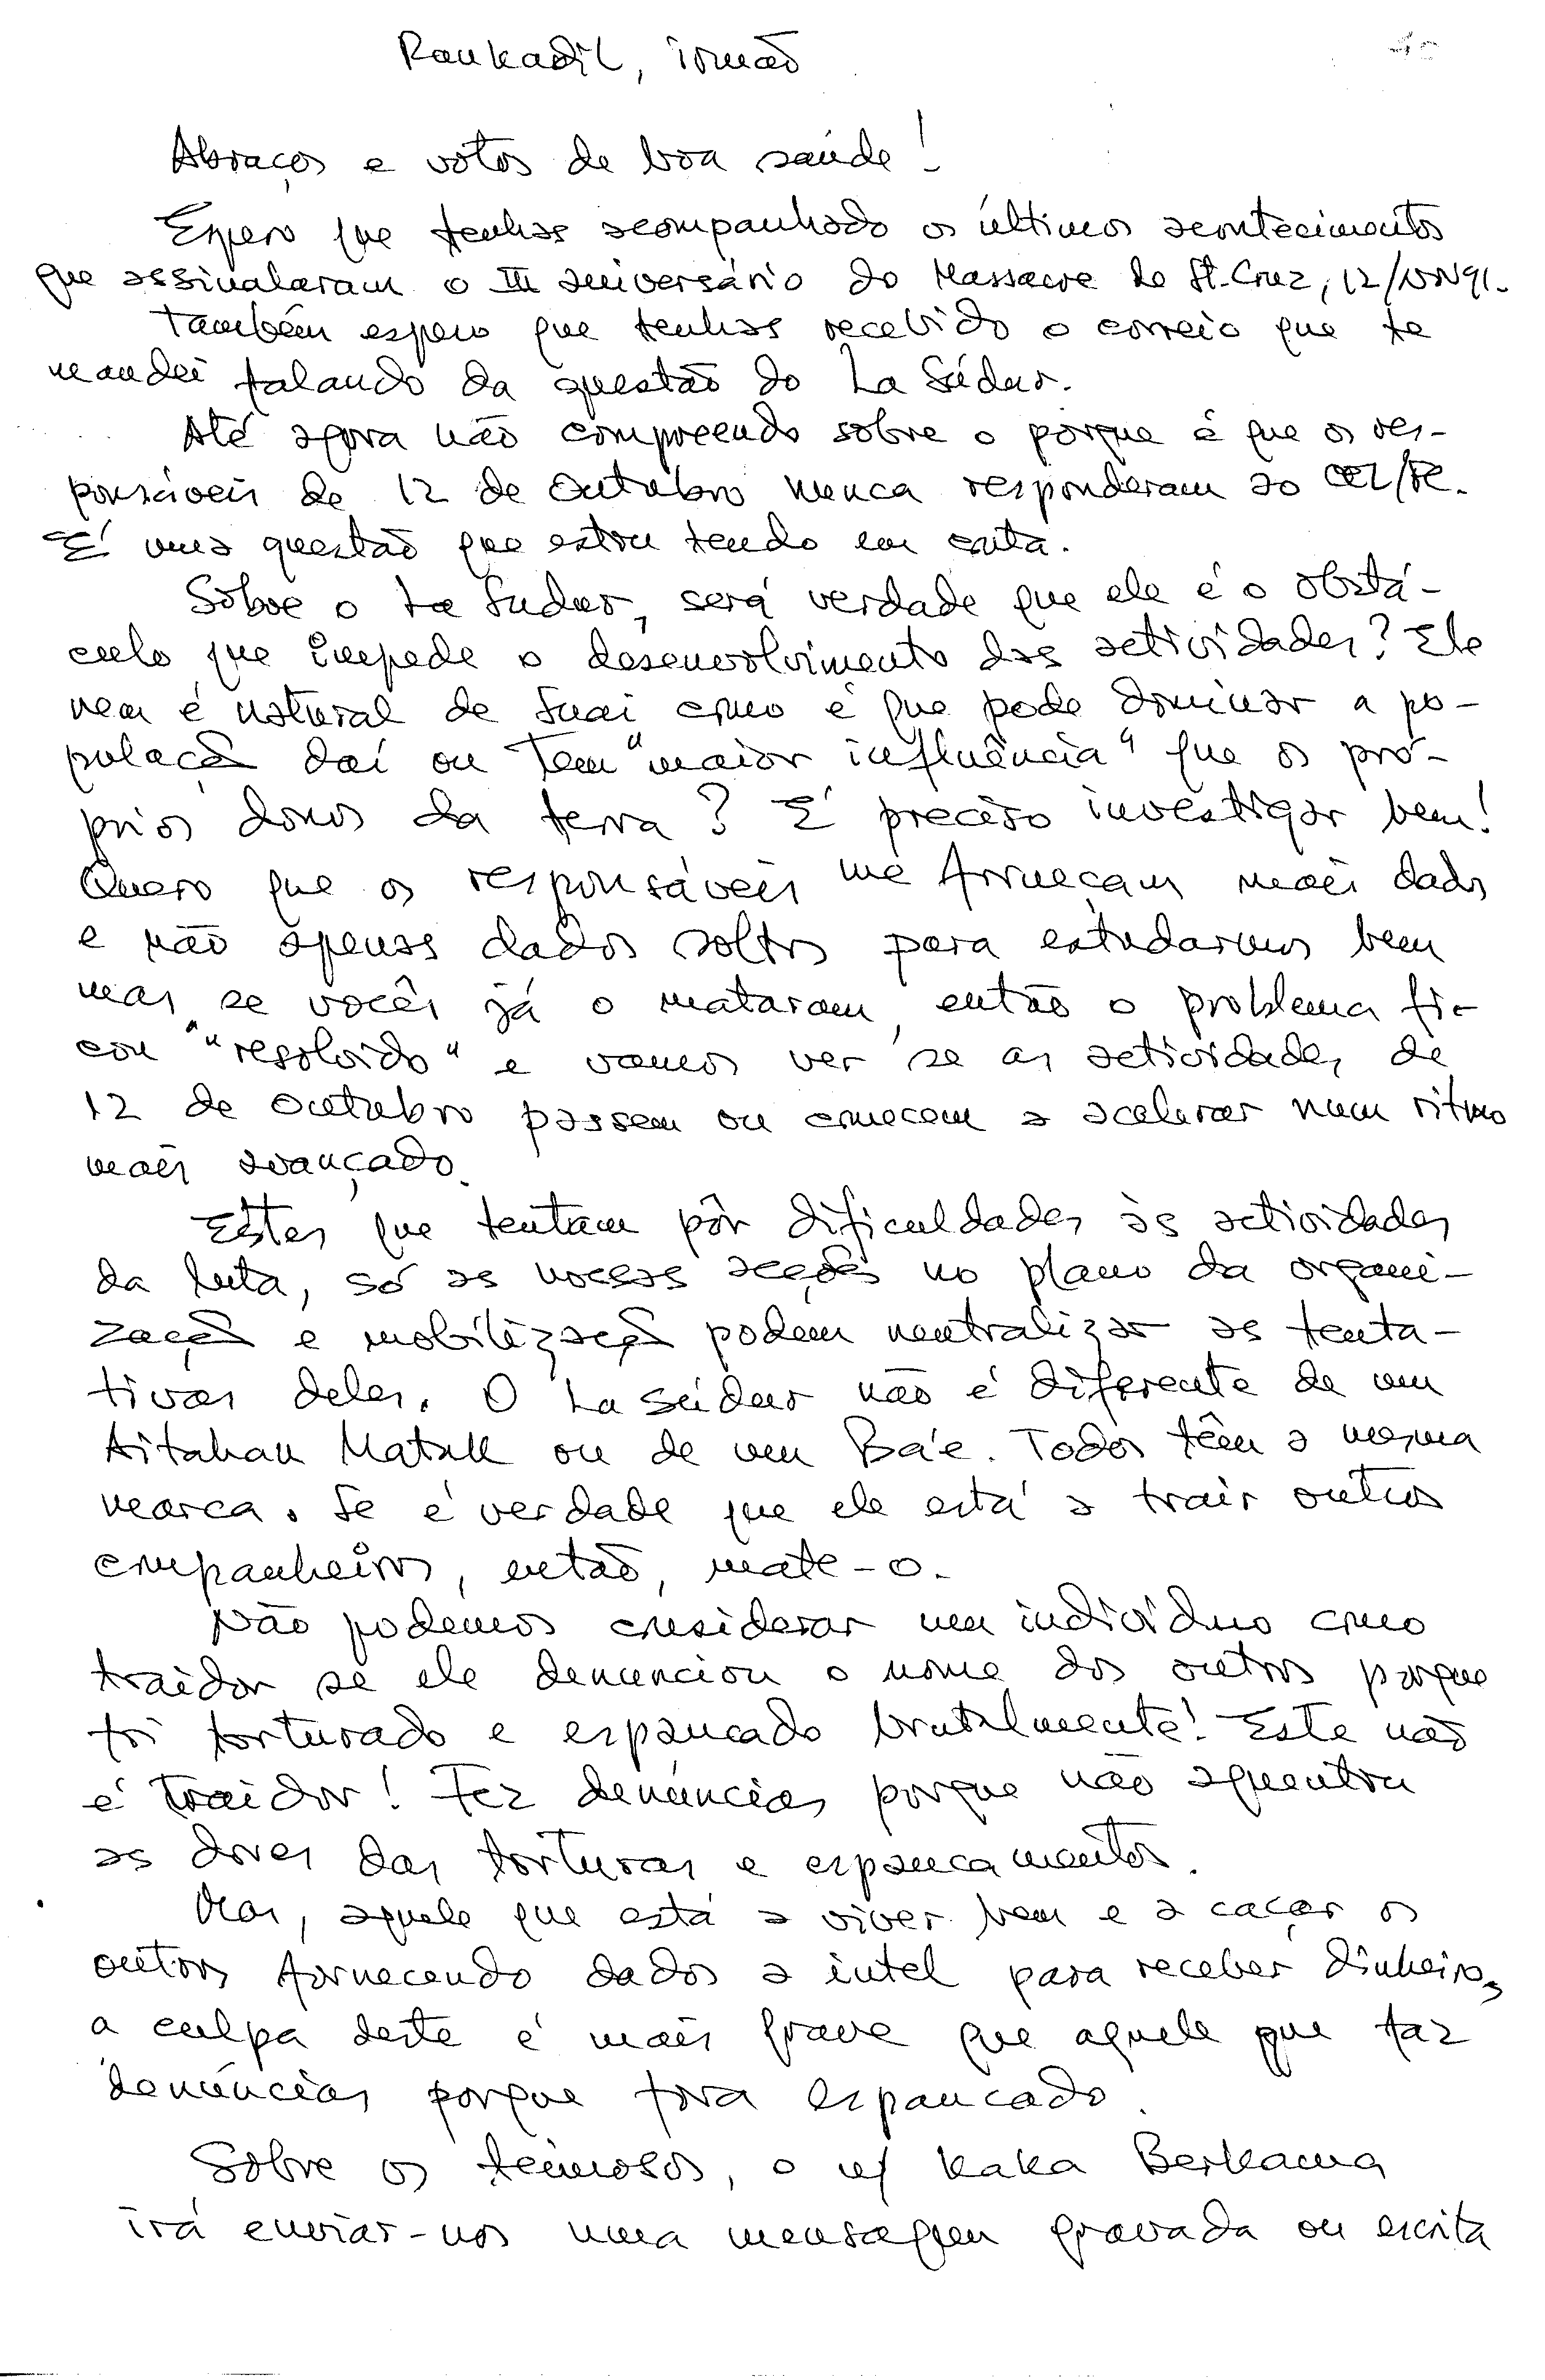 Raukadil, irmão
Abraços e votos de boa saúde!
Espero que tenhas acompanhado os últimos acontecimentos
que assinalaram o III aniversário do Massacre de St. Cruz, 12/NOV91.
Também espero que tenhas recebido o correio que te
mandei falando da questão do La Súdur.
Até agora não compreendo sobre o porque é que os res-
ponsáveis de 12 de Outubro nunca responderam ao CEL/FE.
É uma questão que estou tendo em conta.
Sobre o La Sudur, será verdade que ele é o obstá-
culo que impede o desenvolvimento das actividades? Ele
nem é natural de Suai como é que pode dominar a po-
pulação daí ou tem "maior influência" que os pró-
prios donos da terra? É preciso investigar bem!
Quero que os responsáveis me forneçam mais dados
e não apenas dados soltos para estudarmos bem
mas se vocês já o mataram, então o problema fi-
cou "resolvido" e vamos ver se as actividades de
12 de Outubro passem ou comecem a acelerar num ritmo
mais avançado.
Estes que tentam pôr dificuldades às actividades
da luta, só as nossas acções no plano da organi-
zação e mobilização podem neutralizar as tenta-
tivas deles. O La Súdur não é diferente de um
Aitahan Matak ou de um Ba'e. Todos têm a mesma
marca. Se é verdade que ele está a trair outros
companheiros, então, mate-o.
Não podemos considerar um indivíduo como
traidor se ele denunciou o nome dos outros porque
foi torturado e espancado brutalmente! Este não
é traidor! Fez denúncias porque não aguentou
as dores das torturas e espancamentos.
Mas, aquele que está a viver bem e a caçar os
outros fornecendo dados a intel para receber dinheiro,
a culpa deste é mais grave que aquele que faz
denúncias porque fora espancado.
Sobre os teimosos, o n/ Kaka Berkama
irá enviar-nos uma mensagem gravada ou escrita